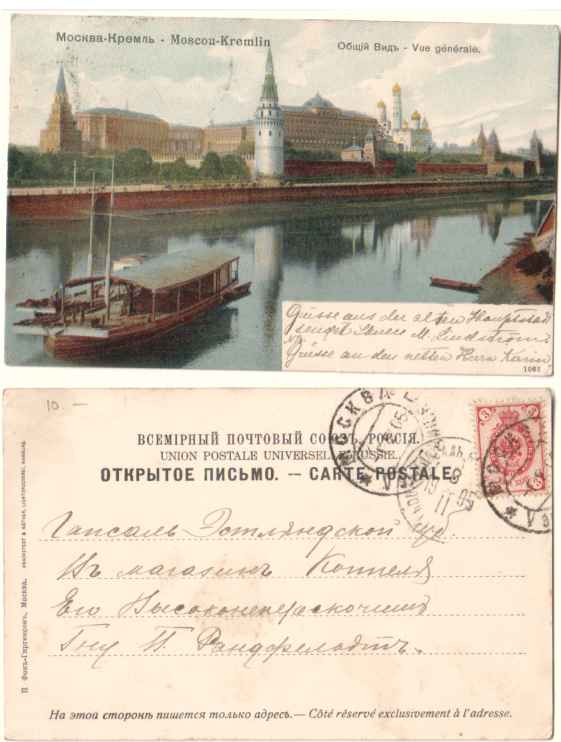 Москва-Кремль - Moscou-Kremlin
Общій Видъ - Vue générale.
Grüsse aus der alten Hauptstad
sendet M. Lindström
Grüsse an den netten Herrn
1061
10. —
ВСЕМІРНЫЙ ПОЧТОВЫЙ СОЮЗЪ. РОССІЯ.
UNION POSTALE UNIVERSELLE. RUSSIE.
ОТКРЫТОЕ ПИСЬМО. — CARTE POSTALE.
МОСКВА
8
11 05
МОСКВА
Гапсаль Эстляндской гу.
Въ магазинъ Коппеля
Его
Гну
П. Фонъ-Гиргенсонъ, Москва.
На этой сторонѣ пишется только адресъ.— Côté réservé exclusivement à l'adresse.